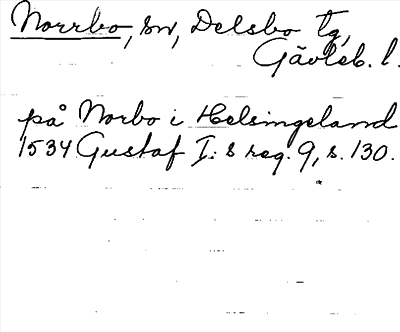 Norrbo, sn, Delsbo tg,
Gävleb. l.
på Norbo i Helsingeland
1534 Gustaf I:s reg. 9, s. 130.